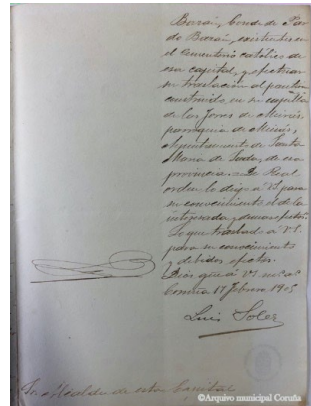 Bazán, Conde de Par-
do Bazán, existentes en
el Cementerio católico de
esa capital, y efectuar
su traslación al panteón
construido en su capilla
de las Torres de Meirás,
parroquia de Meirás,
Ayuntamiento de Santa
María de Sada, de esa
provincia. De Real
orden lo digo á V.S. para
su conocimiento, el de la
interesada y demás efectos.
Lo que traslado á V.S.
para su conocimiento
y debidos efectos.
Dios gue á V.S. ms. as.
Coruña 17 Febrero 1905
Luis Soler
Sr. Alcalde de esta Capital
©Arquivo municipal Coruña